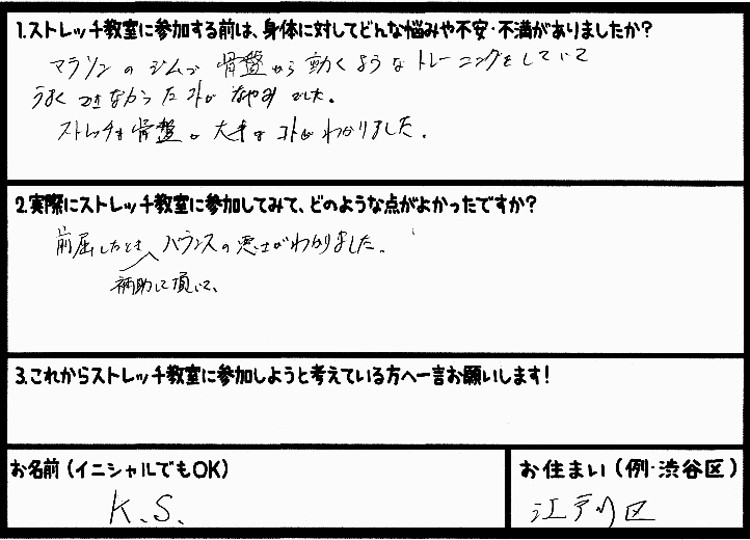 1.ストレッチ教室に参加する前は、身体に対してどんな悩みや不安・不満がありましたか?
マラソンのジムで骨盤から動くようなトレーニングをしていて
うまくできなかった事がなやみでした。
ストレッチも骨盤が大事な事がわかりました。
2.実際にストレッチ教室に参加してみて、どのような点がよかったですか?
前屈したときバランスの悪さがわかりました。
補助して頂いて、
3.これからストレッチ教室に参加しようと考えている方へ一言お願いします!
お名前(イニシャルでもOK)
お住まい(例・渋谷区)
K.S.
江戸川区